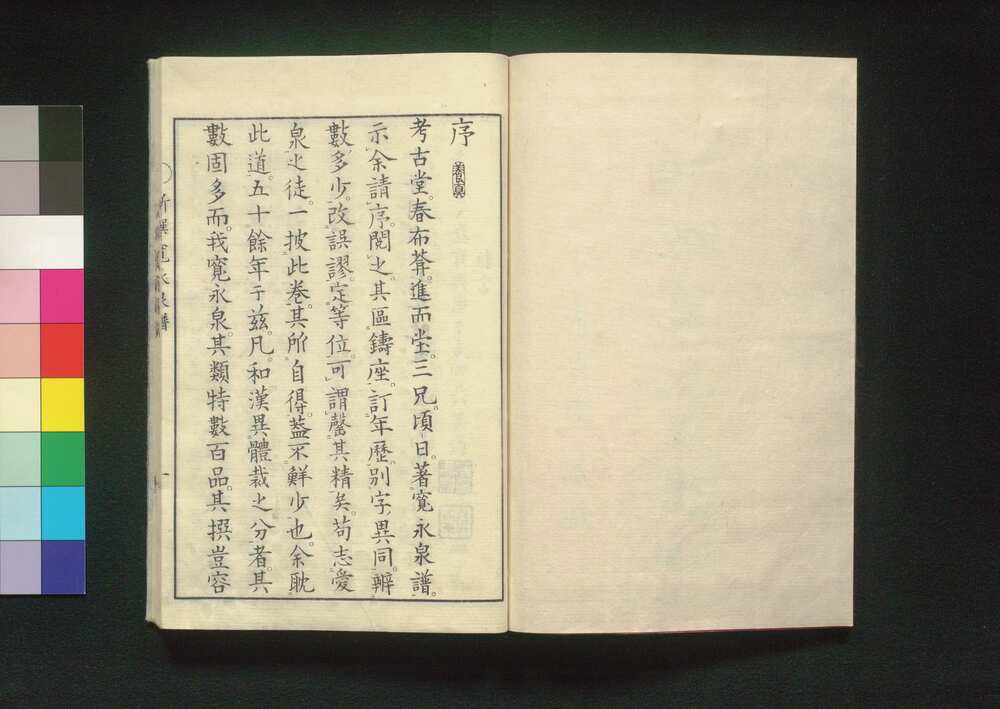 序
考古堂。春布葊。進而堂。三兄頃日。著寬永泉譜。
示余請序。閱之。其區鑄座。訂年歷。別字異同。辨
數多少。改誤謬。定等位。可謂罄其精矣。苟志愛
泉之徒。一披此卷。其所自得。蓋不鮮少也。余耽
此道。五十餘年于茲。凡和漢異體裁之分者。其
數固多而。我寬永泉。其類特數百品。其撰豈容
新撰寬永泉譜
一